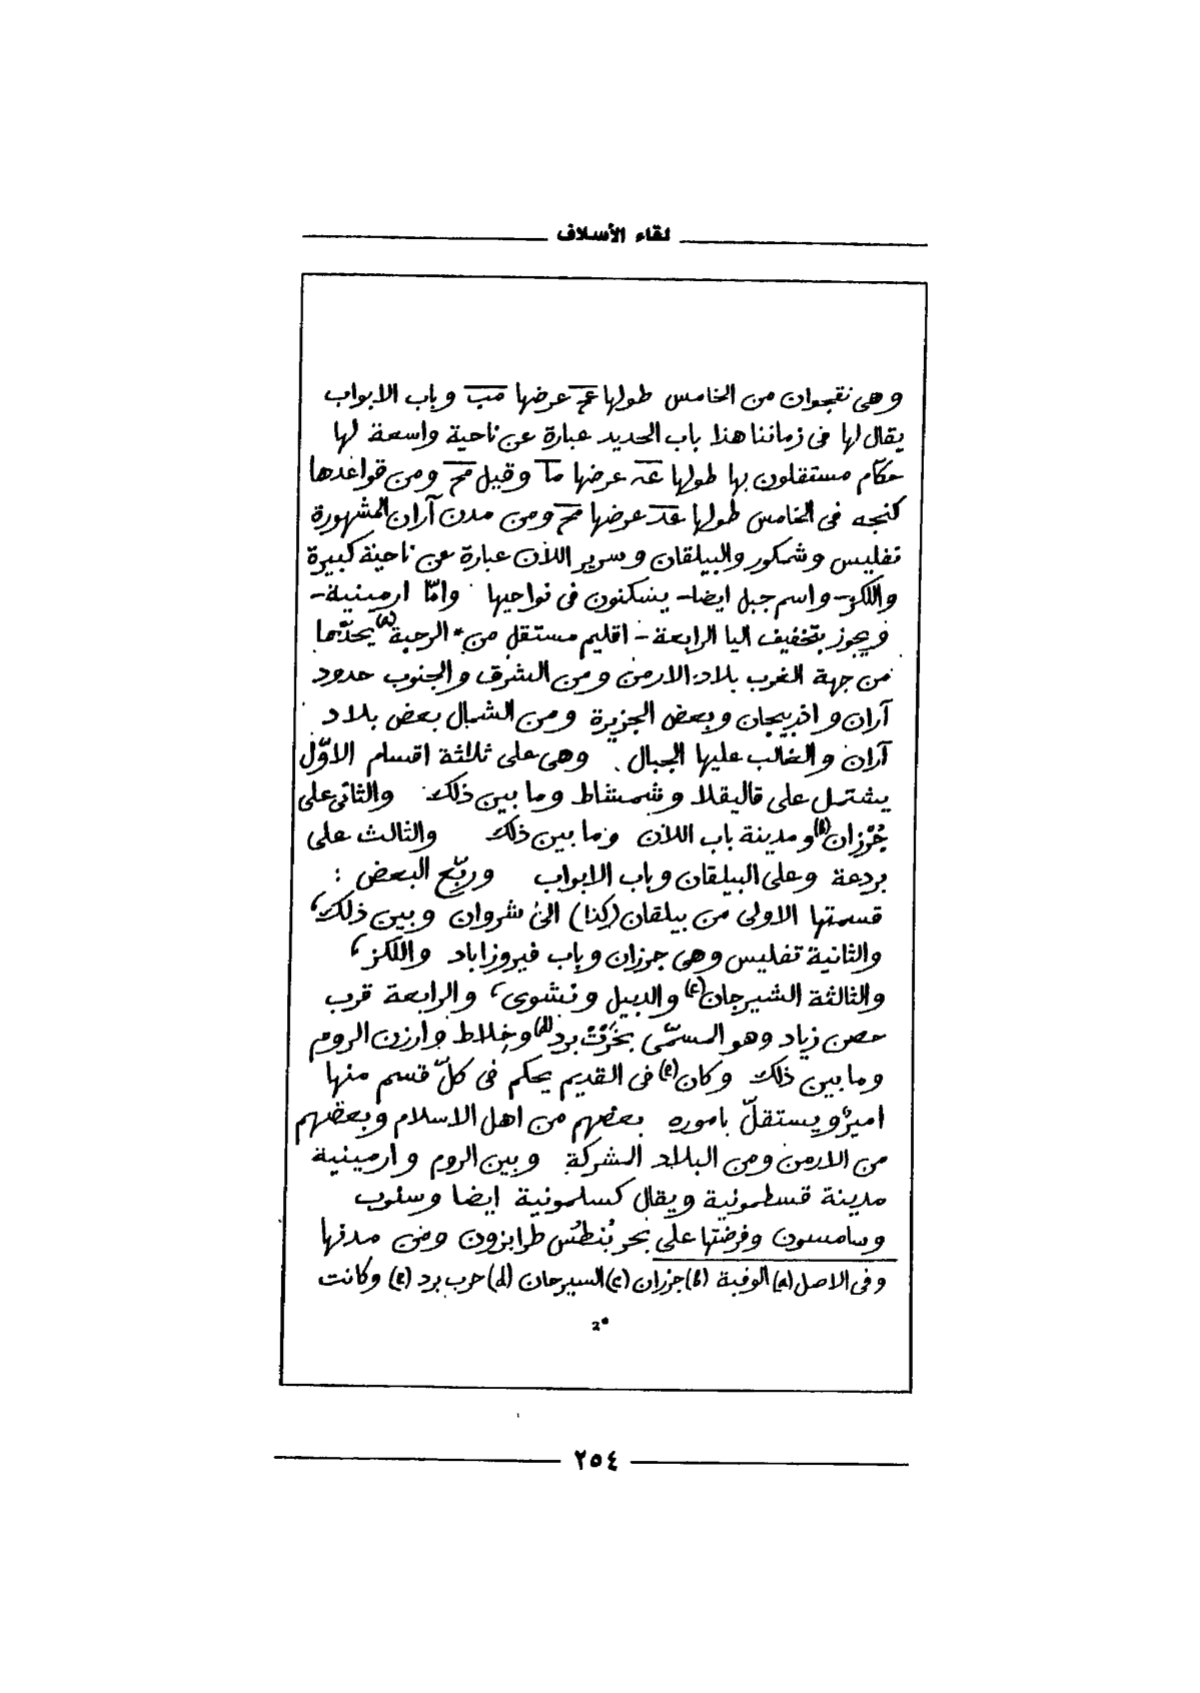 لقاء الأسلاف
وهى نقجوان من الخامس طولها عح عرضها مب وباب الابواب
يقال لها فى زماننا هذا باب الحديد عبارة عن ناحية واسعة لها
حكّام مستقلون بها طولها عه عرضها ما وقيل مح ومن قواعدها
كنجه فى الخامس طولها عد عرضها مح ومن مدن آران المشهورة
تفليس وشمكور والبيلقان وسرير اللان عبارة عن ناحية كبيرة
واللكز - واسم جبل ايضا - يسكنون فى نواحيها وامّا ارمينية -
ويجوز بتخفيف اليا الرابعة - اقليم مستقل من * الرحبة (a) يحدّها
من جهة الغرب بلاد الارمن ومن الشرق والجنوب حدود
آران واذربيجان وبعض الجزيرة ومن الشمال بعض بلاد
آران والغالب عليها الجبال . وهى على ثلاثة اقسام الاوّل
يشتمل على قاليقلا وشمشاط وما بين ذلك والثانى على
جُرْزان (b) ومدينة باب اللان وما بين ذلك والثالث على
بردعة وعلى البيلقان وباب الابواب وربّع البعض :
قسمتها الاولى من بيلقان (كذا) الى شروان وبين ذلك،
والثانية تفليس وهى جرزان وباب فيروزاباد واللكز،
والثالثة الشيرجان (c) والدبيل ونشوى، والرابعة قرب
حصن زياد وهو المسمّى بخَرْتَ برد (d) وخِلاط وارزن الروم
وما بين ذلك وكان (e) فى القديم يحكم فى كلّ قسم منها
اميرٌ ويستقلّ باموره بعضهم من اهل الاسلام وبعضهم
من الارمن ومن البلاد الشركة وبين الروم وارمينية
مدينة قسطمونية ويقال كسلمونية ايضا وسنوب
وسامسون وفرضتها على بحر بُنطُس طرابزون ومن مدنها
وفى الاصل (a) الوفية (b) جزران (c) السيرحان (d) حرب برد (e) وكانت
2*
٢٥٤